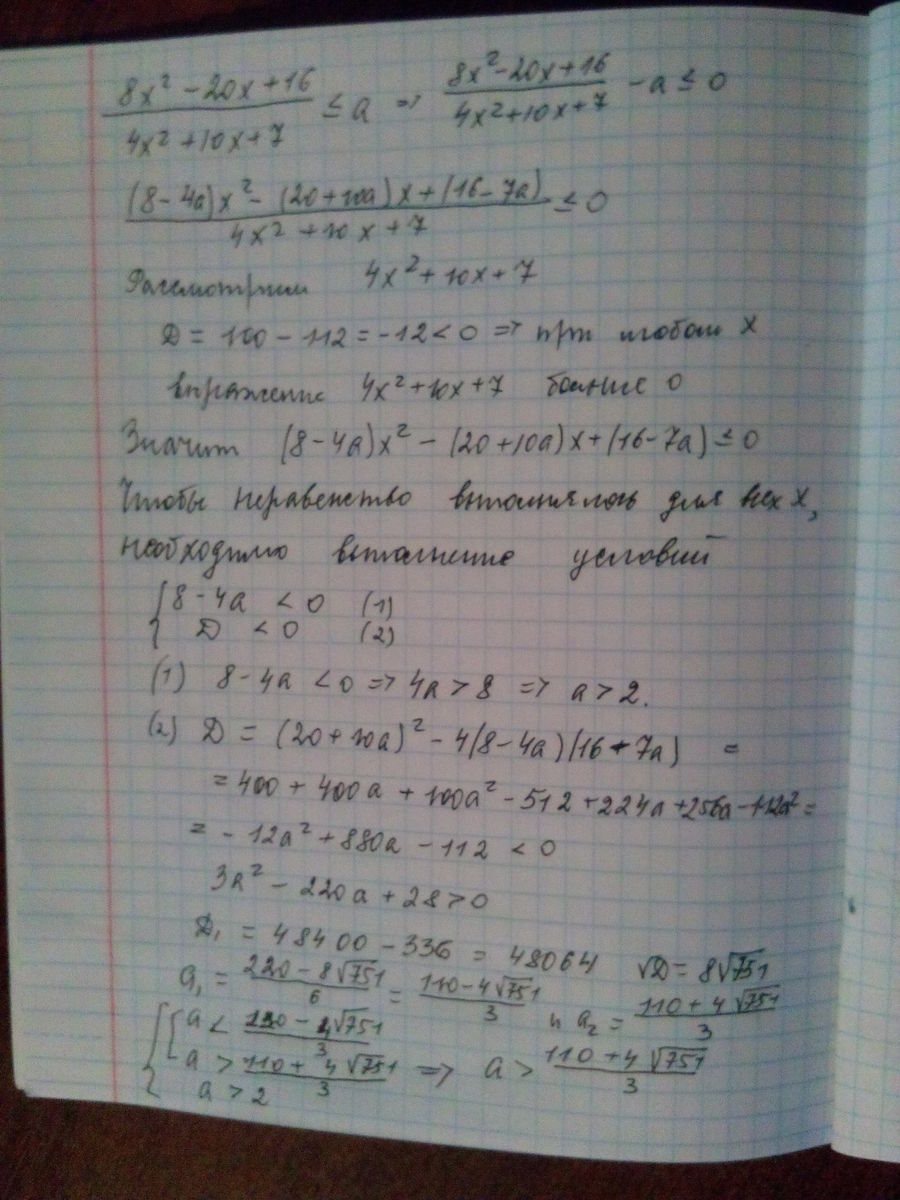 (8x² - 20x + 16)/(4x² + 10x + 7) ≤ a => (8x² - 20x + 16)/(4x² + 10x + 7) - a ≤ 0
((8 - 4a)x² - (20 + 10a)x + (16 - 7a))/(4x² + 10x + 7) ≤ 0
Рассмотрим 4x² + 10x + 7
D = 100 - 112 = -12 < 0 => при любом x
выражение 4x² + 10x + 7 больше 0
Значит (8 - 4a)x² - (20 + 10a)x + (16 - 7a) ≤ 0
Чтобы неравенство выполнялось для всех x,
необходимо выполнение условий
{ 8 - 4a < 0 (1)
{ D < 0 (2)
(1) 8 - 4a < 0 => 4a > 8 => a > 2.
(2) D = (20 + 10a)² - 4(8 - 4a)(16 - 7a) =
= 400 + 400a + 100a² - 512 + 224a + 256a - 112a² =
= -12a² + 880a - 112 < 0
3a² - 220a + 28 > 0
D₁ = 48400 - 336 = 48064 √D = 8√751
a₁ = (220 - 8√751)/6 = (110 - 4√751)/3 и a₂ = (110 + 4√751)/3
{ [ a < (110 - 4√751)/3
{ [ a > (110 + 4√751)/3 => a > (110 + 4√751)/3
{ a > 2